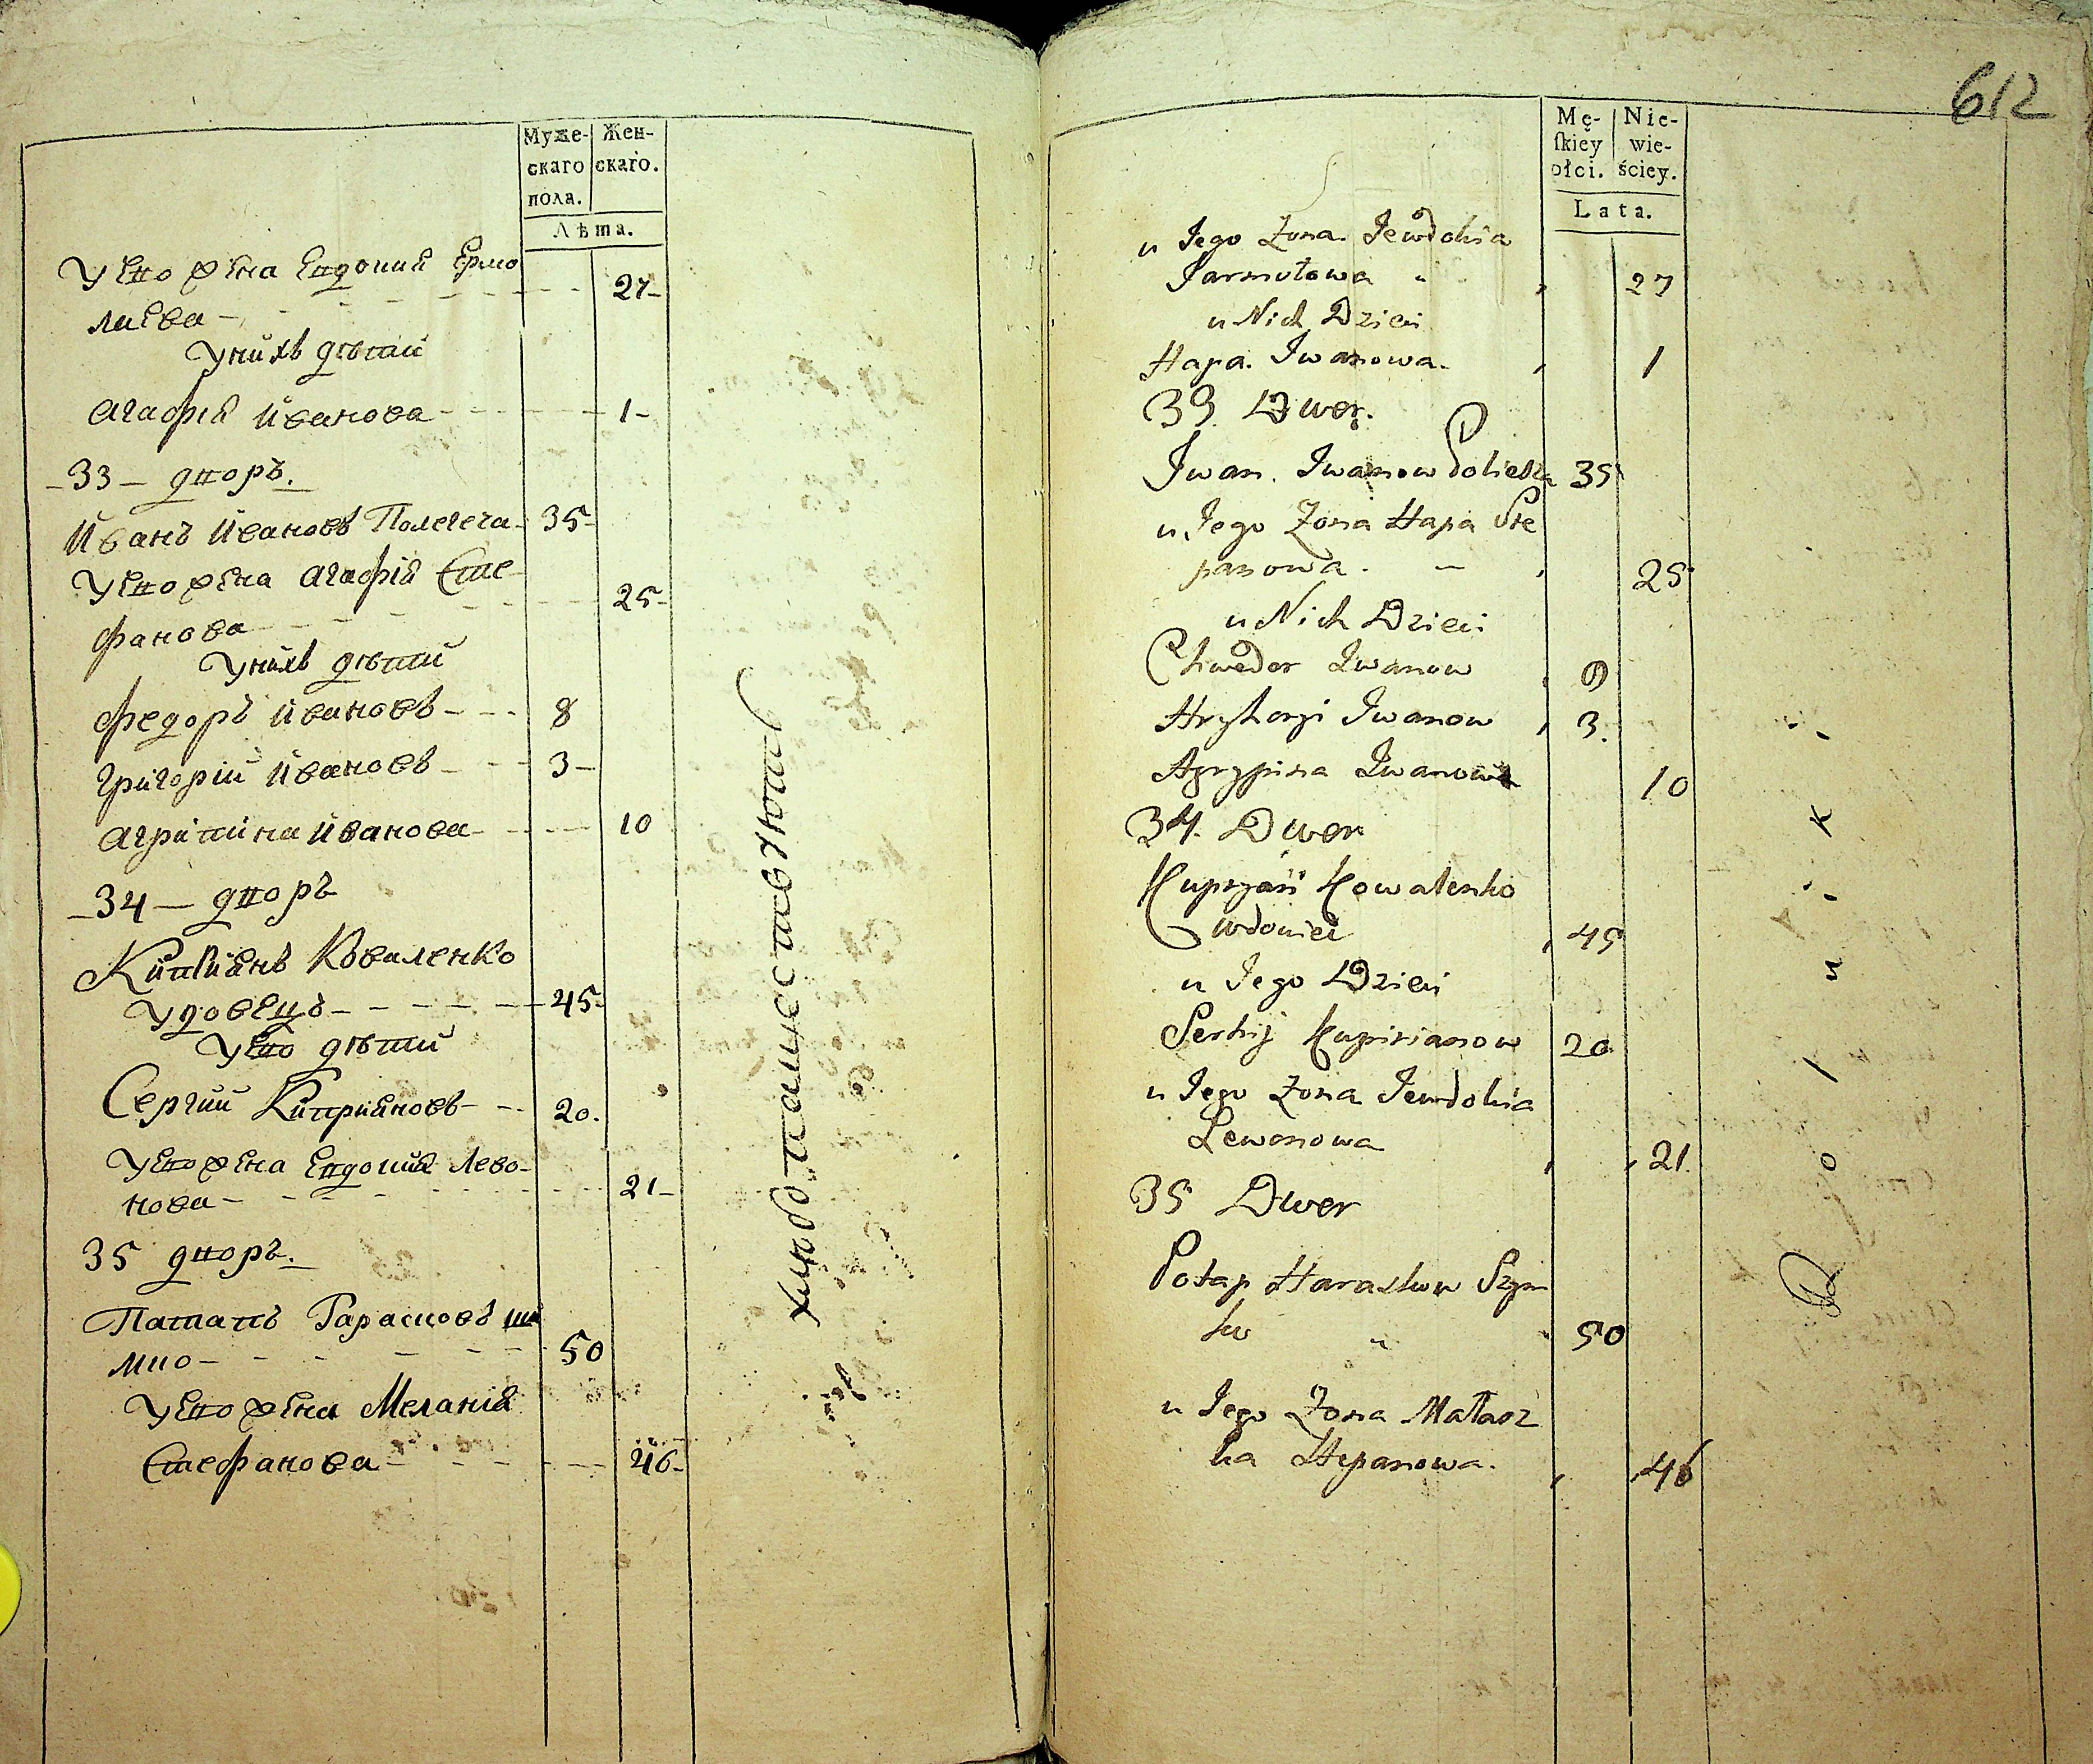 Муже-
скаго
пола.
Жен-
скаго.
Лѣта.
У Его жена Евдокия Ермо
лаева 27
У нихъ дѣти
Агафія Иванова 1
33 дворъ.
Иванъ Ивановъ 35
У Его жена Агафія Сте
фанова 25
У нихъ дѣти
Федоръ Ивановъ 8
Григорій Ивановъ 3
Агрипина Иванова 10
34 дворъ
Киприянъ Коваленко
Удовецъ 45
У Его дѣти
Сергий Киприяновъ 20.
У Его жена Евдокия Лево
нова 21
35 дворъ.
Патапъ Гарасковъ Ши
мко 50
У Его жена Мелания
Стефанова 46
612
Mę-
ſkiey
ołci.
Nie-
wie-
ściey.
Lata.
u Jego Zona Jewdokia
Jarmołowa 27
u Nich Dzieci
Hapa. Iwanowa. 1
33 Dwor.
Iwan. Iwanow 35
u Jego Zona Hapa Ste
panowa. 25
u Nich Dzieci
Chwedor Iwanow 9
Hryhoryi Iwanow 3.
Agrypina Iwanowa 10
34. Dwor
Kupryan Kowalenko
wdowiec 45
u Jego Dzieci
Serhij Kuprianow 20
u Jego Zona Jewdokia
Lewonowa 21.
35 Dwor
Potap Haraskow Szym
ko 50
u Jego Zona Małasz
ka Stepanowa. 46